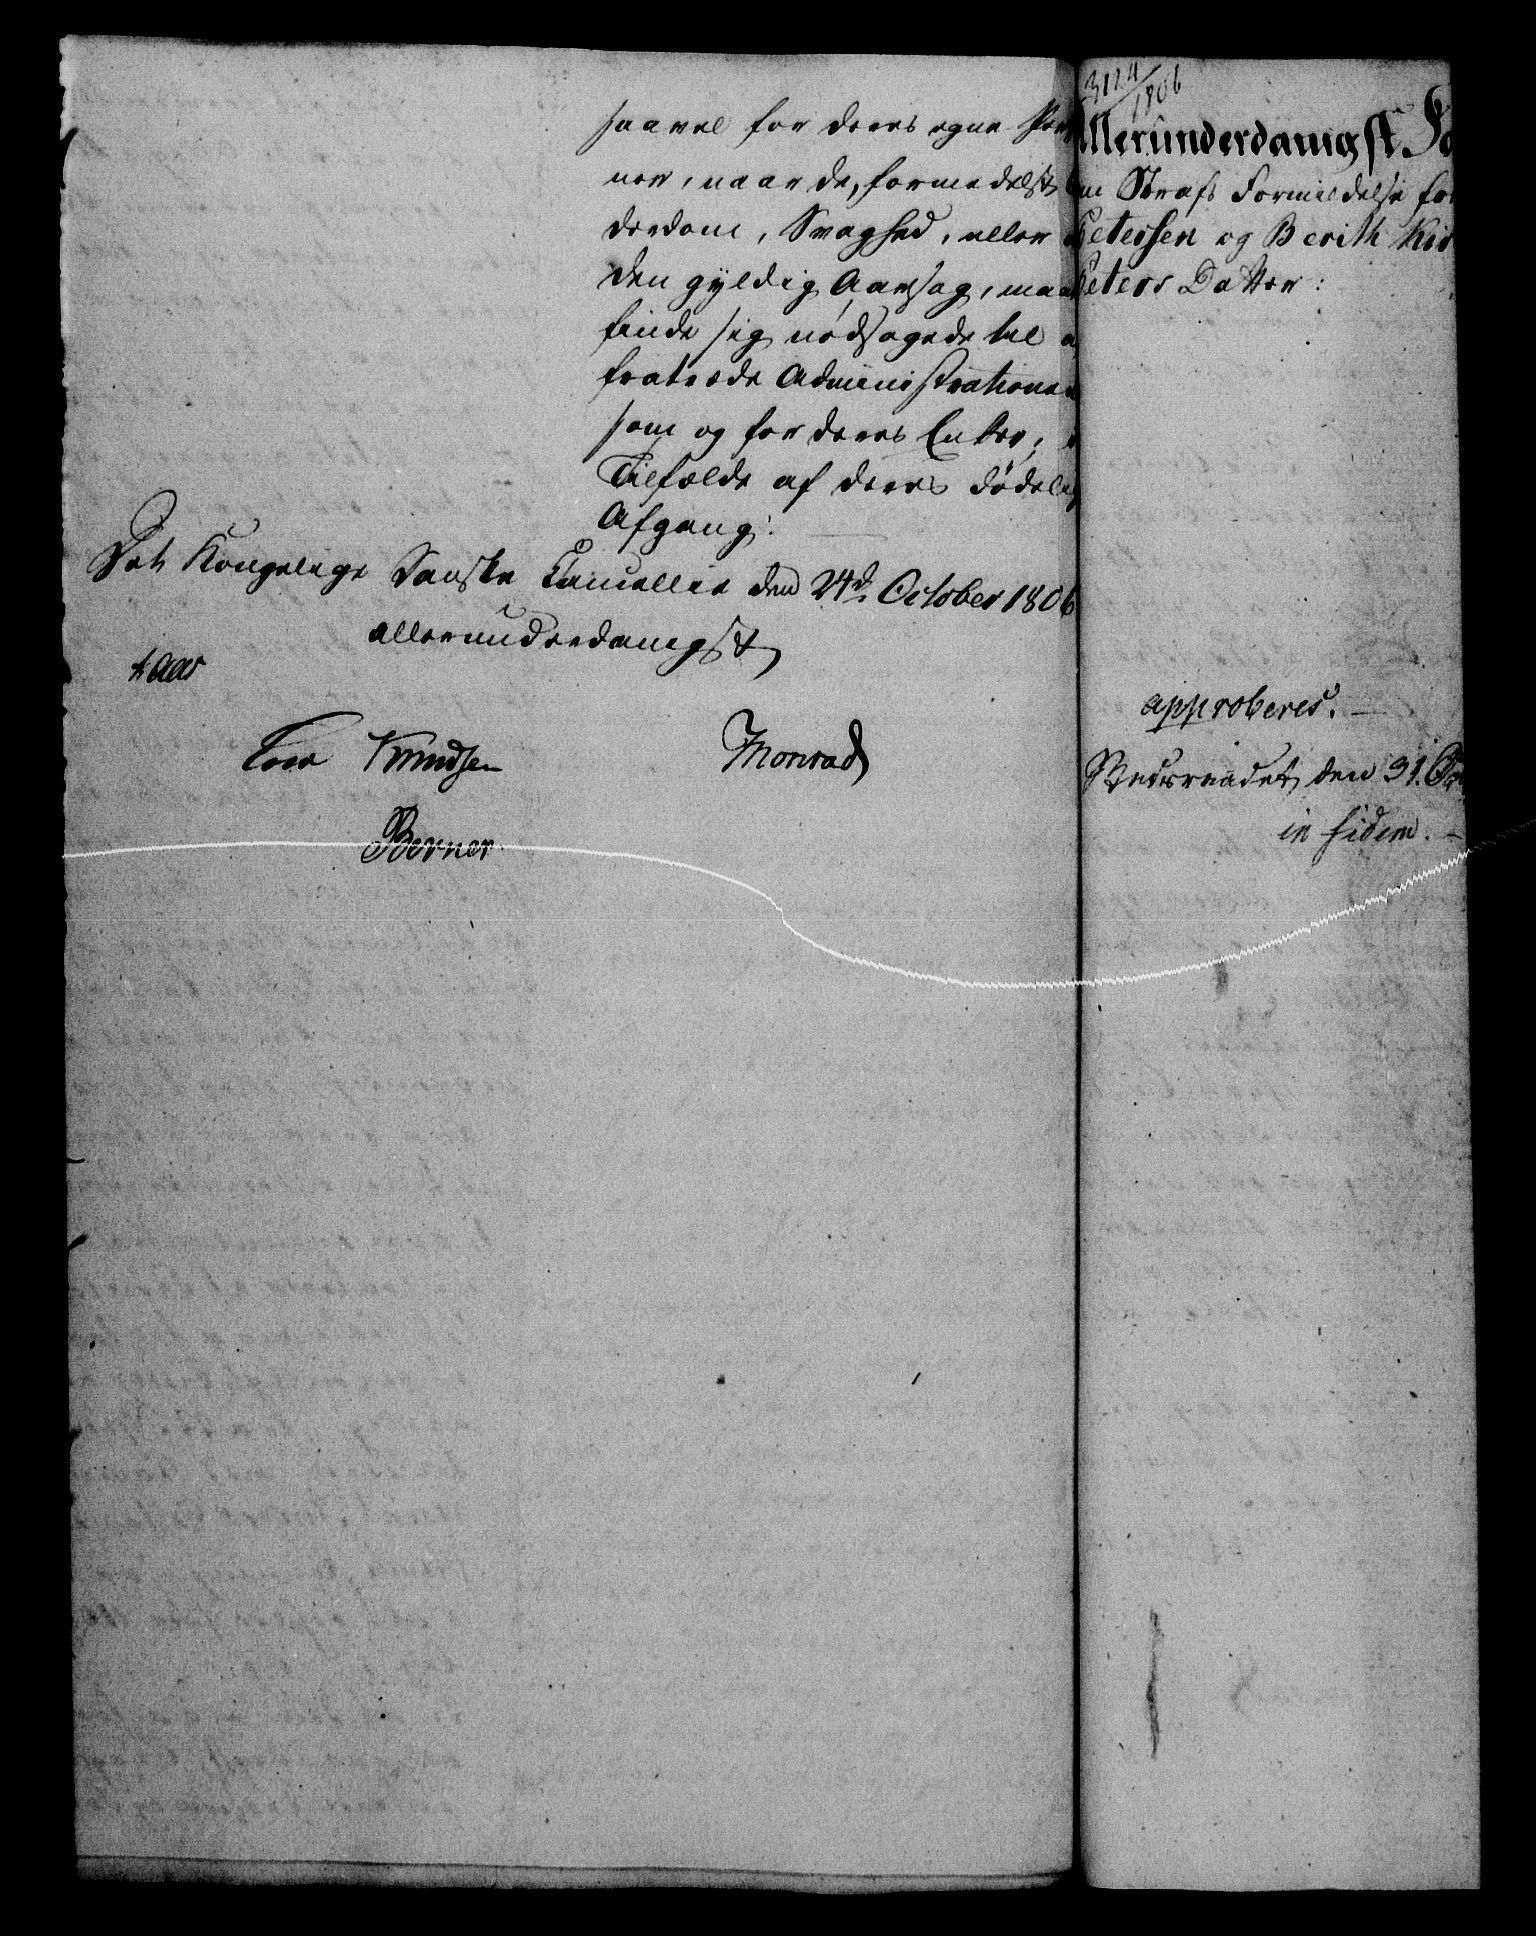 saavel for deres egne Per
ner, naar de, formedelst
derdom, Svaghed, eller
den gyldig Aarsag, maat
finde sig nødsagede til a
fratræde Administrationen
som og for deres Enker, i
Tilfælde af deres dødelig
Afgang.
Det Kongelige Danske Cancellie den 24d. October 1806
allerunderdanigst
Kaas
Knudsen Monrad
Berner
3124/1806
Allerunderdanigst Fo
m Strafs Formildelse for
Petersen og Berith Kir
Peters Datter:
approberes.
Statsraadet, den 31. O
in fidem.